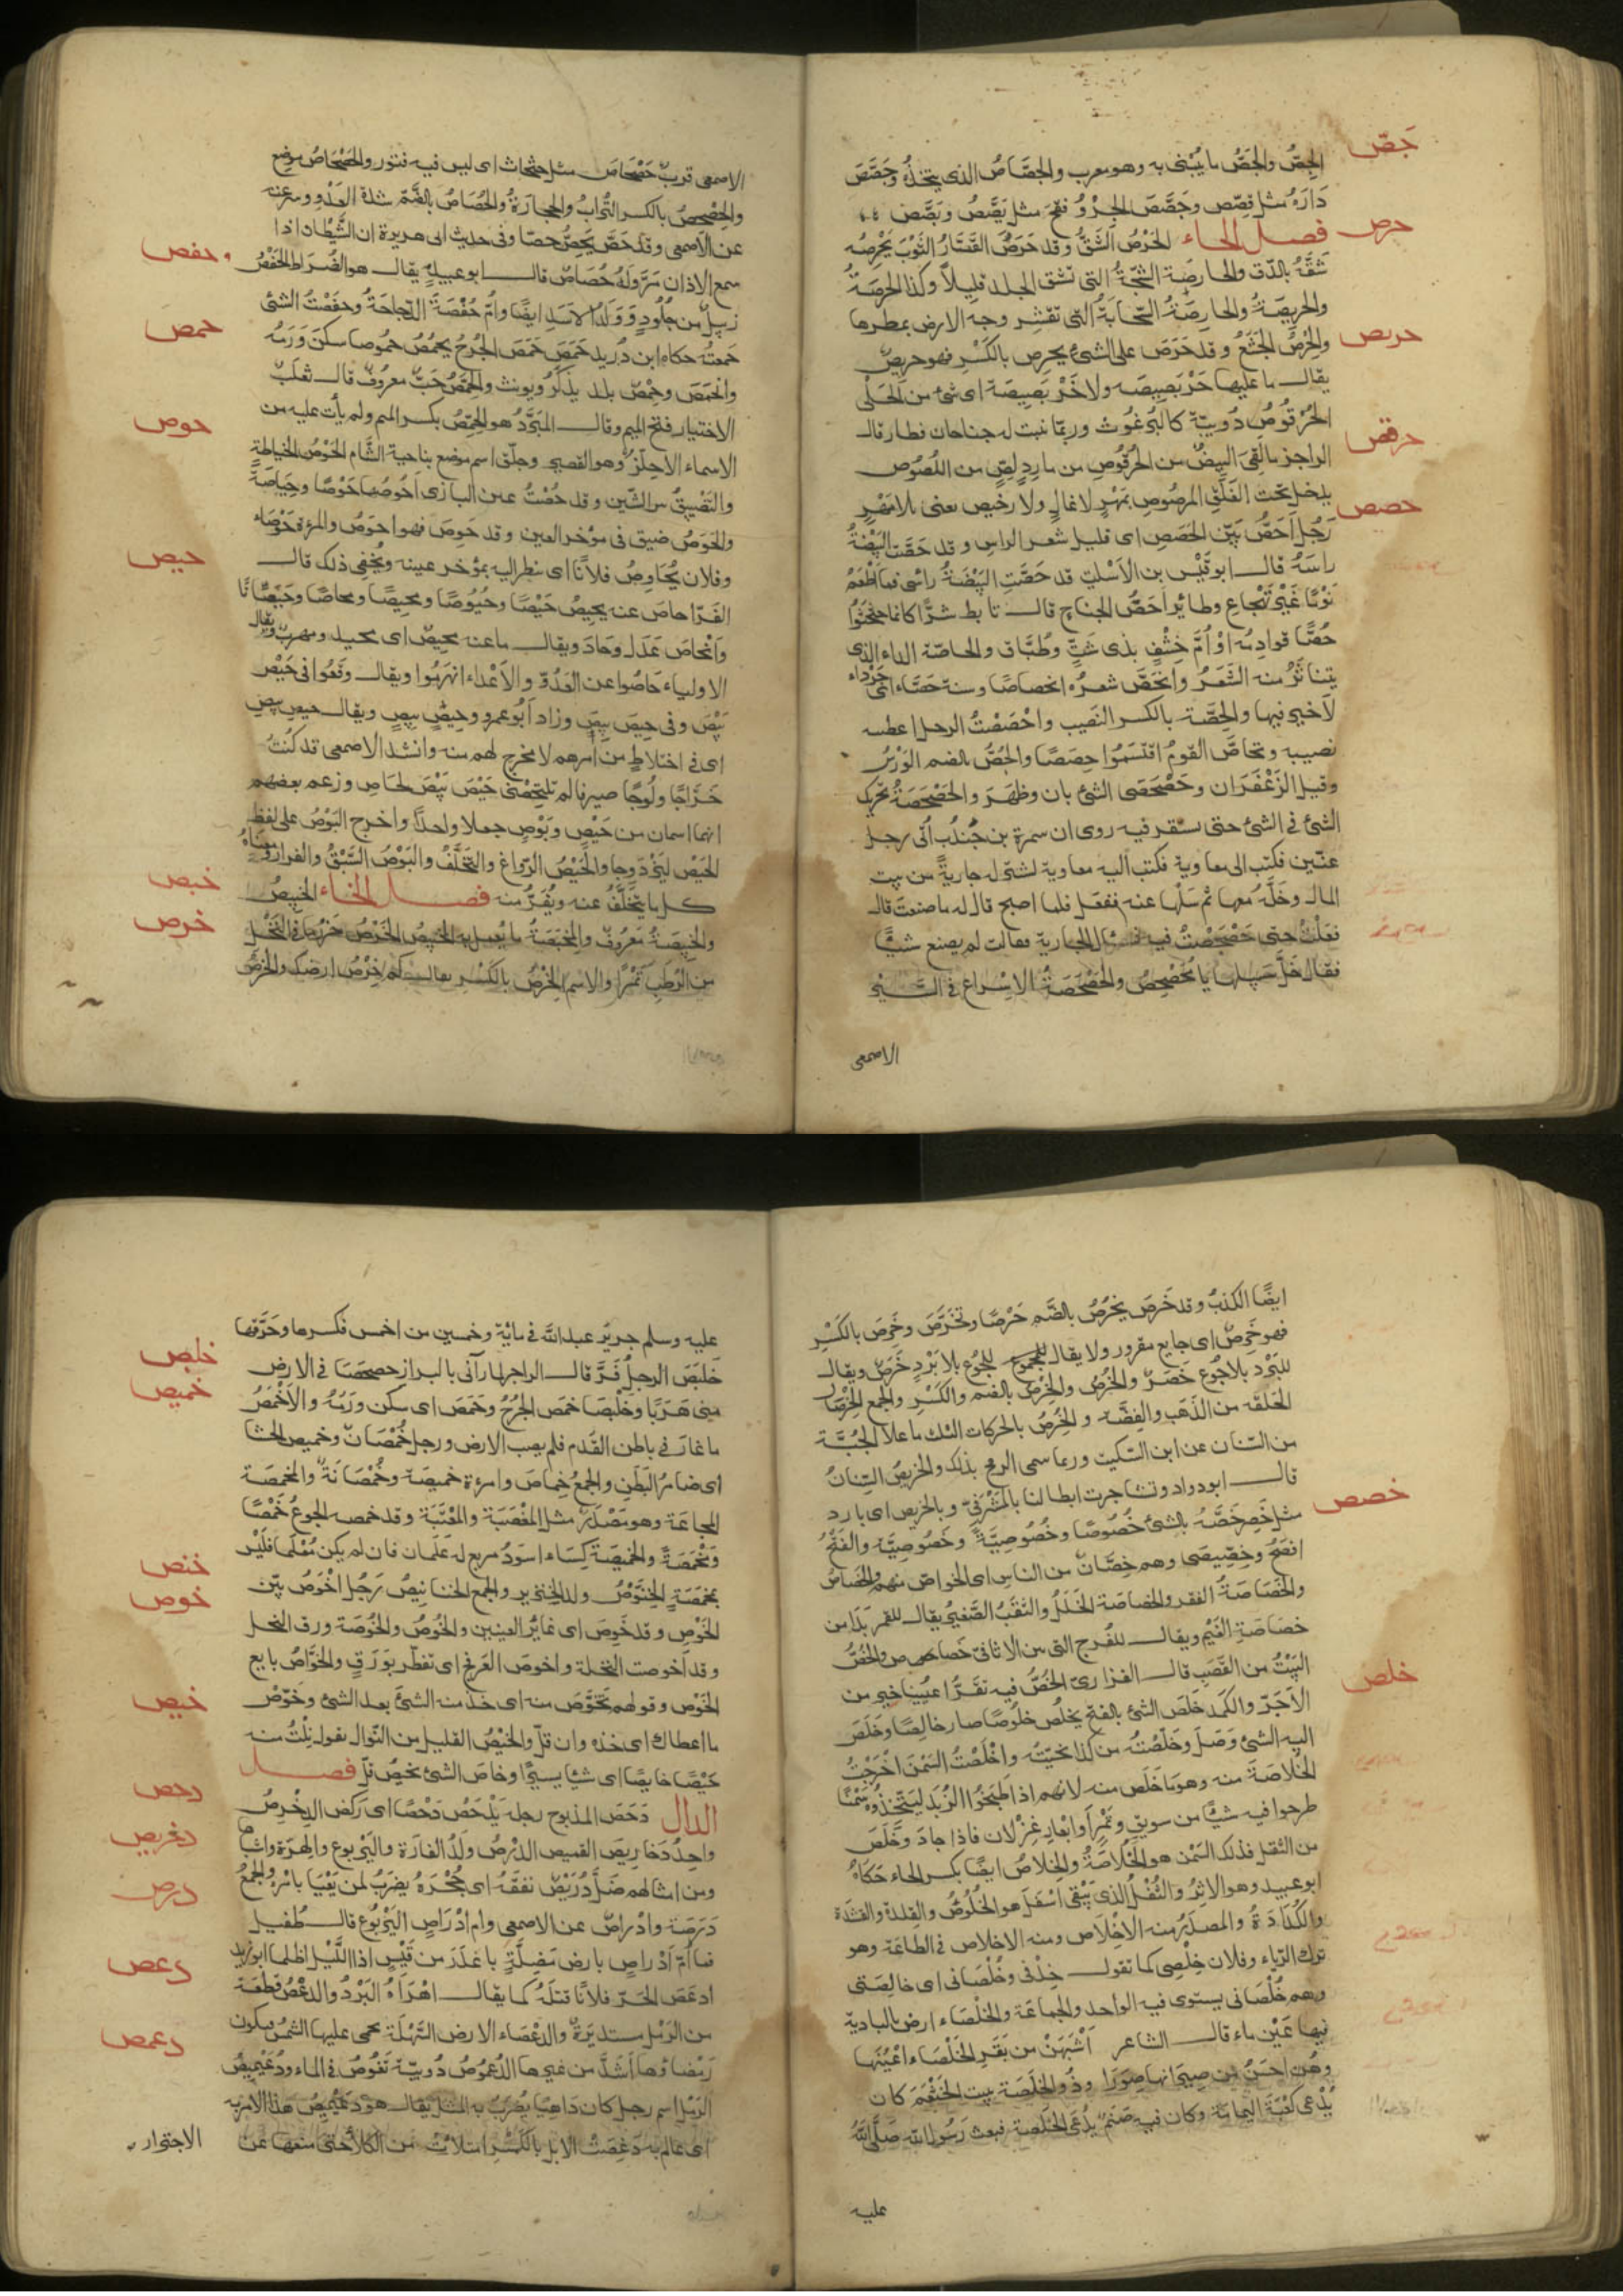 جصّ
الجِصُّ والجَصُّ ما يُبْنى به وهو معرب والجصَّاصُ الذى يتخذُهُ وجَصَّصَ
دَارَهُ مثل قصّص وجَصَّصَ الجِرْوُ فتحَ مثل يَصَّصَ وبَصَّصَ
حرص
فصل الحاء الحَرْصُ الشَقُّ وقد حَرَصَ القَصَّارُ الثَوْبَ يَحْرِصُه
شَقَّهُ بالدّق والحارصَةُ الشجّةُ التى تشق الجلد قليلاً وكذا الحرصَةُ
والحريصَةُ والحارِصَةُ السَّحابَةُ التى تقشر وجه الارض بمطرها
والحِرْصُ الجَشَعُ وقد حَرَصَ على الشئ يحرِص بالكَسْرِ فهو حريصٌ
حربص
يقال ما عليها حَرْبَصِيصَه ولا خَرْبَصِيصَة اى شئ من الحَلْى
حرقص
الحُرْقُوصُ دُويبّة كالبُرْغُوث وربمّا نبت له جناحان فطار قال
الراجز ما لَقِىَ البِيضُ من الحُرْقُوصِ من مارِدٍ لِصٍّ من اللُصُوص
يدخل تحت الغَلَقِ المرصُوص بمَهْرٍ لا غالٍ ولا رخيص يعنى بلا مَهْرٍ
حصص
رَجُلٌ اَحَصُّ بَيّن الحَصَصِ اى قليل شعر الراس وقد حَصَّت البَيْضَةُ
راسَهُ قال ابو قَيْس بن الاَسْلَتِ قد حَصَّتِ البَيْضَةُ رأسى فما اَطْعَمُ
نَوْمًا غَيْرَ تَهْجَاعِ وطائر اَحَصُّ الجناحِ قال تابط شرًّا كانما حثحثوا
حُصًّا قوادِمُه اَوْ اُمَّ خِشْفٍ بذى شَثٍّ وطُبَّاق والحاصّة الداء الذى
يتناثَرُ منه الشَعَرُ وانحَصَّ شعرُه انحصاصًا وسنة حَصَّاء اى جَرْدَاء
لا خير فيها والحِصَّة بالكسر النَصيب واحْصَصْتُ الرجل اعطيته
نصيبه وتحاصَّ القومُ اقتسَمُوا حِصَصًا والحُصُّ بالضم الوَرْسُ
وقيل الزَعْفَرَان وحَصْحَصَ الشئ بان وظَهَرَ والحَصْحَصَةُ تحريك
الشئ فى الشئ حتى يستقر فيه روى ان سمرة بن جُنْدُب اُتى برجل
عنّين فكتب الى معاوية فكتب اليه معاوية اشتَر له جاريةً من بيت
المال وخَلِّه معها ثم سَلْها عنه ففعل فلما اصبح قال له ما صنعتَ قال
فعلتُ حتى حَصْحَصْتُ فيه فسأل الجارية فقالت لم يصنع شيئًا
فقال خَلِّ سَبِيلها يا مُحَصْحِصُ والحَصْحَصَةُ الاسْراع فى السَّيْر
الاصمعى
الاصمعى قربٌ حَصْحاصٌ مثل حَثحاث اى ليس فيه فتور والحَصْحَاصُ موضع
والحِصْحِصُ بالكسر التُرابُ والحِجارَةُ والحُصَاصُ بالضّم شدة العَدْوِ وسرعته
عن الاَصمعى وقد حَصَّ يَحصُّ حصّا وفى حديث ابى هريرة ان الشَّيْطان اذا
حفص
سمع الاذان مَرَّ وَلَهُ حُصَاصٌ قال ابو عبيد يقال هو الضُراط الحَفْصُ
زبيلٌ من جُلُودٍ وَوَلَدُ الاَسَدِ ايضًا واُمُّ حَفْصَة الدجاجَةُ وحفصْتُ الشئ
حمص
جمعتُه حكاه ابن دُريد حَمَصَ حَمَصَ الجُرْحُ يحمُصُ حمُوصا سكن وَرَمُه
وانحَمَصَ وحِمْصُ بلد يذكَّرُ ويونث والحِمَّصُ حَبٌّ معروفٌ قال ثعلبٌ
الاختيار فتح الميم وقال المبَرِّدُ هو الحِمِّصُ بكسر الميم ولم يأت عليه من
الاسماء الا حِلِّزٌ وهو القصير وجلّق اسم موضع بناحية الشَّام
حوص
الحَوْصُ الخياطة
والتَضْييقُ بين الشّئين وقد حُصْتُ عين البازى اَحُوصُها حَوْصًا وحِيَاصَةً
والحَوَصُ ضيق فى مؤخر العين وقد حَوِصَ فهو احوَصُ والمرءة حَوْصَاء
وفلان يُحَاوِصُ فلانًا اى ينظر اليه بمؤخر عينه ويُخفى ذلك
حيص
قال
الفَرّا حاصَ عنه يحيصُ حَيْصًا وحُيُوصًا ومحِيصًا ومحاصًا وحَيَصَانًا
وانحاصَ عَدَل وحادَ ويقال ما عنه محيصٌ اى محيد ومهرب ويقال
الاولياء حَاصُوا عن العَدُوّ والاَعْداء انهَزموا ويقال وقَعُوا فى حَيْصَ
بَيْصَ وفى حِيصَ بِيصَ وزاد اَبُو عمرو وحِيصٍ بيصٍ ويقال حيصِ بيصِ
اى فى اختلاطٍ من اَمرهم لا مخرج لهم منه وانشد الاصمعى قد كنتُ
خَرَّاجًا ولُوجًا صيرفا لم تلتحِصْنى حَيْصَ بَيْصَ لحَاصِ وزعم بعضهم
انهما اسمان من حَيْصٍ وبَوْصٍ جعلا واحدًا واخرج البَوْصُ على لفظِ
الحَيْص ليَزْدَوجا والحَيْصُ الرّواغ والتَخَلُّفُ والبَوْصُ السَّبْقُ والفرار ومعناهُ
خبص
كل ما يُتَخَلَّفُ عنه ويُفَرُّ منه فصل الخاء الخَبِيصُ
والخَبِيصَةُ مَعْروفٌ والمِخْبَصَةُ ما يُعمل به الخبيص
خرص
الخَرْصُ حَزْرُ ما فى النَّخْل
من الرُطَبِ تَمْرًا والاسم الخِرْصُ بالكَسْر يقال كم خِرْصُ ارضك والخَرْصُ
ايضًا الكذِبُ وقد خَرَصَ يخرُصُ بالضَّم خَرْصًا وتَخَرَّصَ وخَرِصَ بالكَسْرِ
فهو خَرِصٌ اى جايع مقرور ولا يقال للجوع للجُوع بلا بَرْدٍ خَرَصٌ ويقال
للبَرْد بلا جُوع خَصَرٌ والخُرْصُ والخِرْصُ بالضم والكَسْرِ والجمع الخِرْصان
الحَلقه من الذَهَب والفِضَّة والخرصُ بالحركات الثلث ما علا الجُبَّة
من السّنان عن ابن السّكيت وربما سمى الرمح بذلك والخريصُ السِّنانُ
قال ابو دواد وتشاجرت ابطالنا بالمَشْرَفِىّ وبالخريص اى بارد
خصص
مثل خَصِرٍ خَصَّهُ بالشئ خُصُوصًا وخُصُوصِيَّةً وخَصُوصِيَّة والفَتْحُ
افصَحُ وخِصِّيصَى وهم خِصَّانٌ من الناس اى الخواصّ منهم والخَصَاصُ
والخَصَاصَةُ الفقر والخصاصة الخَلَلُ والثقبُ الصَّغيرُ يقال للقمر بَدَا من
خصاصَةِ الغَيْم ويقال للفُرج التى بين الاثافى خَصَاصٌ والخُصُّ
البَيْتُ من القَصَبِ قال الفزارىّ الخُصُّ فيه تقَرُّ اعيُننا خير من
خلص
الآجَرّ والكَمَد خَلَصَ الشئ بالفتح يخلُص خلُوصًا صار خالِصًا وخَلَصَ
اليه الشئ وَصَلَ وخَلّصْتُه من كذا نحيّتُه واخْلَصْتُ السَمْنَ اخْرَجْتُ
الخُلاصَةَ منه وهو ما خَلَص منه لانهم اذا اطبخوا الزُبَد ليتّخذُوه سَمْنًا
طرحوا فيه شيئًا من سويقٍ وتَمْرٍ او ابْعارِ غِزْلان فاذا جادَ وخَلَصَ
من الثفل فذلك السَمْن هو الخُلاصَةُ والخِلاصُ ايضًا بكسر الخاء حَكاهُ
ابو عبيد وهو الاِثرُ والثُفْلُ الذى يَبْقى اسْفَلَ هو الخُلُوصُ والقِلدَة والقشدَة
والكُدَادَةُ والمصدَرُ منه الاِخْلاص ومنه الاخلاص فى الطاعَة وهو
ترك الرّياء وفلان خِلْصِى كما تقول خِدْنى وخُلْصَانى اى خالِصَتى
وهم خُلْصَانى يستوى فيه الواحد والجماعَة والخَلْصَاء ارض بالبادية
فيها عَيْن ماء قال الشاعر اَشْبَهْنَ من بَقَرِ الخَلْصَاء اعْيُنَها
وهُنّ احسَنُ من صِيرانها صِوَرَا وذُو الخَلَصَة بيت لخَثْعَمَ كان
يُدْعى كَعْبَةَ اليمامَة وكان فيه صَنَمٌ يُدْعَى الخلصة فبعث رَسُول الله صَلَّى اللهُ
عليه
عليه وسلم جريرَ عبد الله فى مايَةٍ وخمسين من احمس فكسرها وحَرَّقها
خلبص
خَلبَصَ الرجلُ فَرَّ قال الراجز لما رآنى بالبراز حصحَصَا فى الارض
خميص
منى هَرَبًا وخَلْبَصَا خمَصَ الجُرْحُ وحَمَصَ اى سكن ورَمُهُ والاَخْمَصُ
ما غارَ فى باطن القَدَم فلم يصب الارض ورجل خُمْصَانٌ وخميص الحشا
اى ضامرُ البَطن والجمعُ خِماص وامرءة خميصَة وخُمْصَانَةٌ والمخمصَة
المجاعَة وهو مَصْدَرٌ مثل المغْضَبَة والمعْتَبَة وقد خمصه الجوعُ خَمْصًا
ومَخْمَصَةً والخميصَة كِسَاء اسوَدُ مربع له عَلَمان فان لم يكن مُعْلَما فليْسَ
خنص
بخمَصَةٍ الخِنَّوْصُ ولد الخِنزير والجمع الخنانِيصُ
خوص
رَجُلٌ اخْوَصُ بَيّن
الخَوَص وقد خَوِصَ اى غايرُ العينين والخُوصُ والخُوصَة ورق النخل
وقد اَخوصت النخلة واخوصَ العَرفج اى تفطّر بوَرَقٍ والخَوَّاصُ بايع
الخُوْصِ وقولهم تَخَوَّصَ منه اى خُذ منه الشئَ بعد الشئ وخَوّصْ
خيص
ما اعطاك اى خذه وان قلّ والخَيْصُ القليل من النّوال يقول نِلْتُ منه
خَيْصًا خايصًا اى شيئًا يسيرًا وخاصَ الشئ يخيصُ قلّ فصل
دحص
الدال دَحَصَ المذبوح رجله يَدْحَصُ دَحْصًا اى رَكَضَ
دخرص
الدِخْرِصُ
واحِدُ دَخاريصَ القميص
درص
الدَرْصُ ولَدُ الفارَة واليَرْبوع والهِرّة واشباهها
ومن امثالهم ضَلَّ دُرَيْصٌ نفقَهُ اى جُحْرَهُ يضرَبُ لمن يَعْيَا بامْرِه والجمعُ
دَرَصَة وادْراصٌ عن الاصمعى وام ادْرَاصٍ اليَرْبُوعُ قال طُفيل
فما اُمُّ اَدْراصٍ بارض مَضِلَّةٍ باغدَرَ من قَيْسٍ اذا اللَّيْل اظلما
دعص
ابو زيد
ادعَصَ الحَرّ فلانًا قتلَهُ كما يقال اهْرَأهُ البَرْدُ والدِعْصُ قطعَة
من الرَمْل مستديرَةٌ والدعْصَاء الارض السَّهْلَة تحمى عليها الشمسُ فيكون
دعمص
رَمْضاؤها اَشَدَّ من غيرها الدُعمُوصُ دُويبّة تَغُوصُ فى الماء ودُعَيْمِيصُ
الرَمْل اسم رجل كان دَاهِيًا يُضْرَبُ به المثل يقال هو دُعَيْمِيصُ هَذا الامر به
اى عالم به دَغِصَتْ الابل بالكَسْرِ امتلأتْ من الكلأ حتى منعها عن
الاجترار